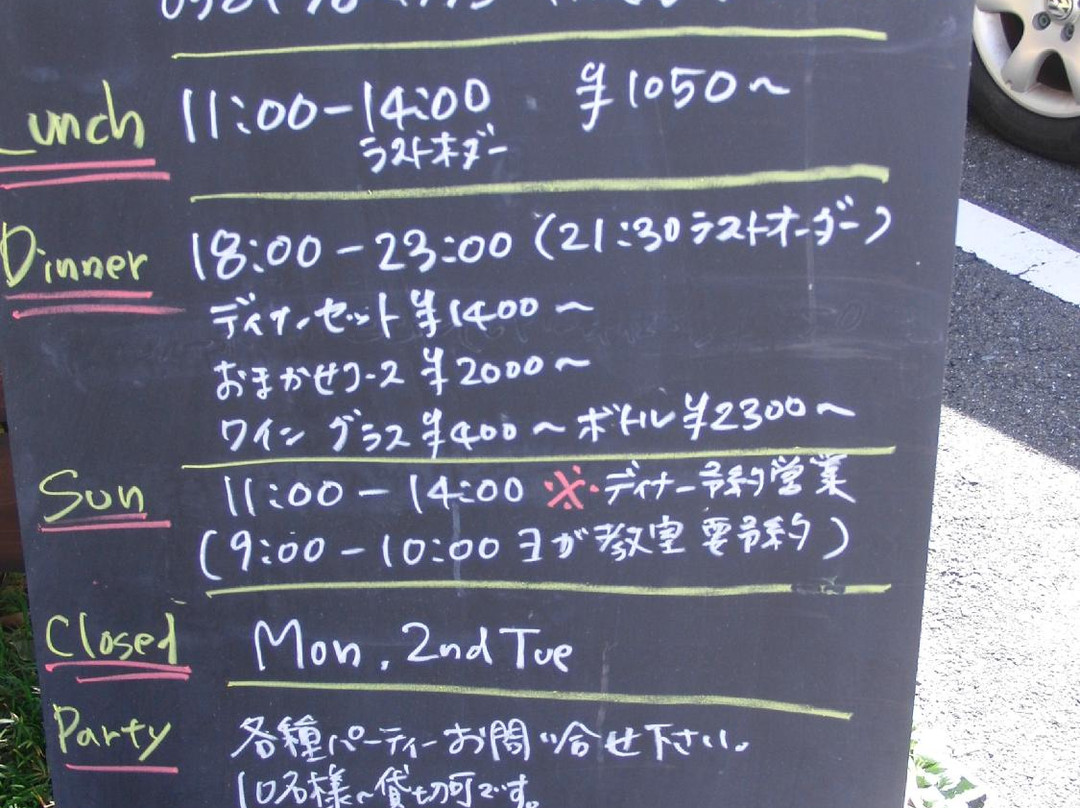 Lunch 11:00-14:00 ¥1050~
ラストオーダー
Dinner 18:00-23:00 (21:30ラストオーダー)
ディナーセット ¥1400~
おまかせコース ¥2000~
ワイン グラス ¥400~ ボトル ¥2300~
Sun 11:00-14:00 ※ディナー予約営業
(9:00-10:00 ヨガ教室 要予約)
Closed Mon, 2nd Tue
Party 各種パーティーお問い合せ下さい。
10名様~貸切可です。